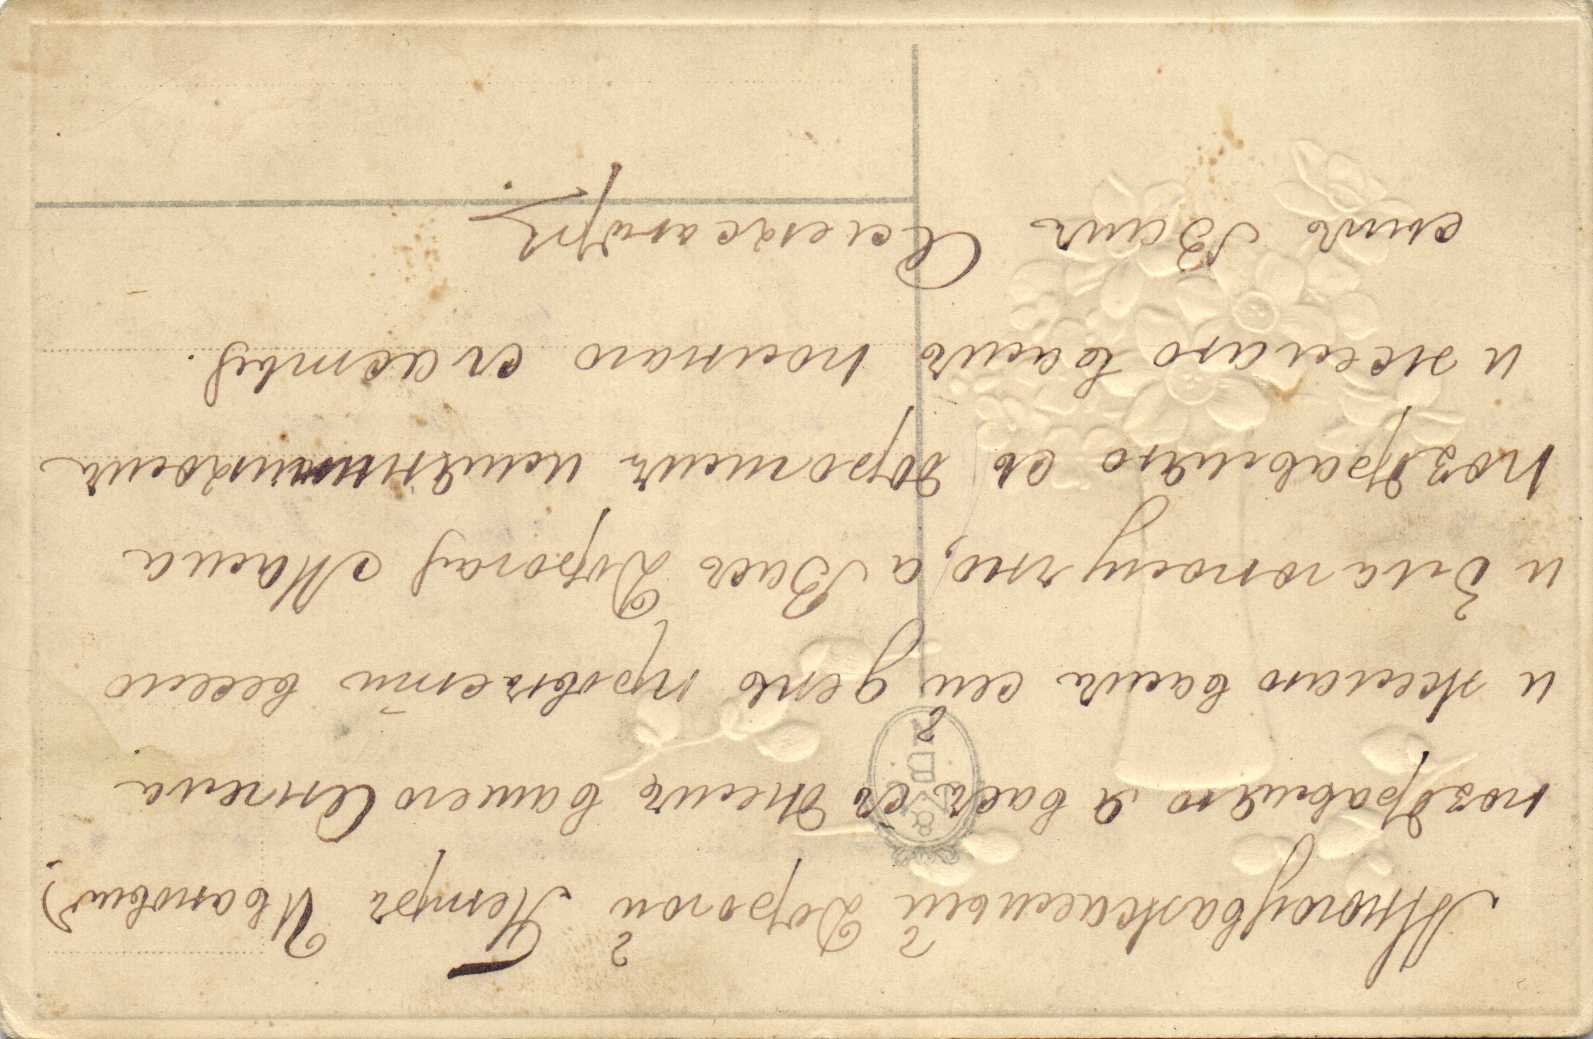 Многоуважаемый Дорогой Петръ Ивановичъ
поздравляю я васъ съ днемъ вашего Ангела
и желаю вамъ сей день провѣсти весело
и благополучно, а Васъ Дорогая Маша
поздравляю съ дорогимъ имянинникомъ
и желаю вамъ полнаго счастья.
сынъ Вашъ Александръ.